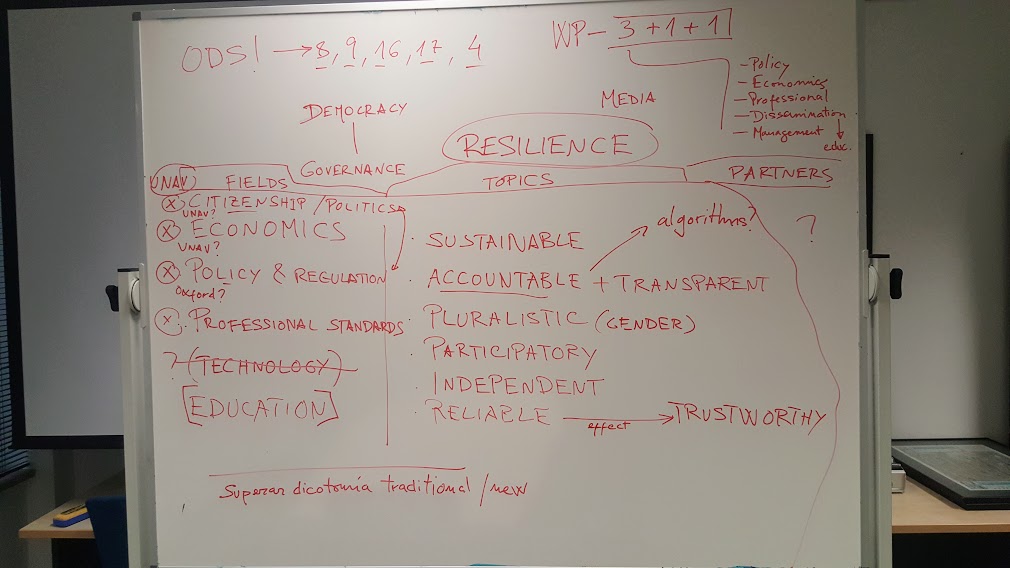 ODS! → 8, 9, 16, 17, 4
WP- 3+1+1
-Policy
-Economics
-Professional
-Dissemination
-Management
educ.
DEMOCRACY
MEDIA
RESILIENCE
GOVERNANCE
UNAV FIELDS
TOPICS
PARTNERS
(X) CITIZENSHIP / POLITICS
UNAV?
(X) ECONOMICS
UNAV?
(X) POLICY & REGULATION
Oxford?
(X) PROFESSIONAL STANDARDS
? (TECHNOLOGY)
[EDUCATION]
· SUSTAINABLE
algorithms?
· ACCOUNTABLE + TRANSPARENT
· PLURALISTIC (GENDER)
· PARTICIPATORY
· INDEPENDENT
· RELIABLE → TRUSTWORTHY
effect
?
Superar dicotomía traditional / new